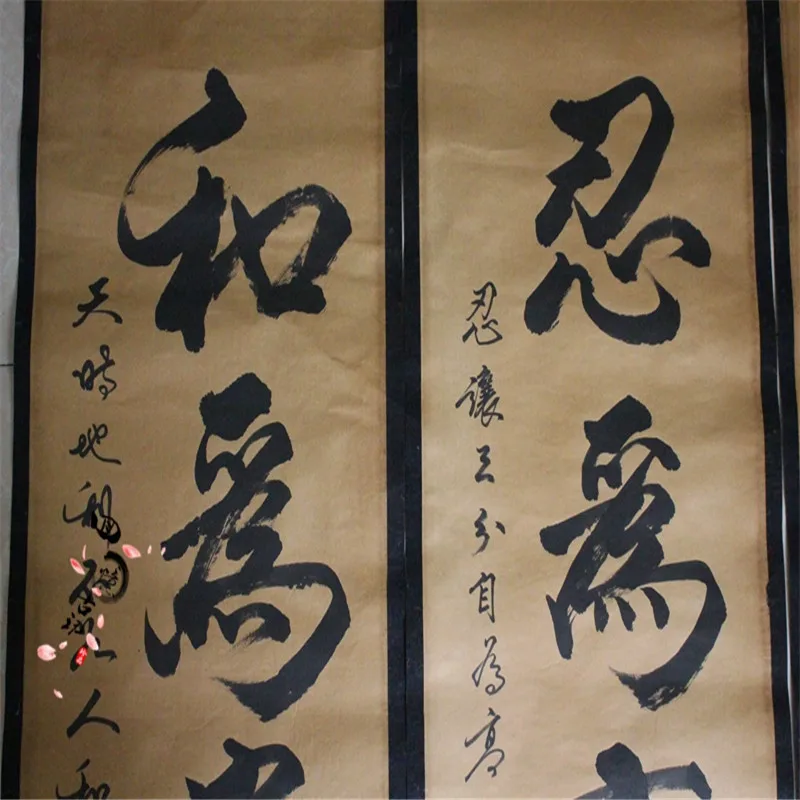 忍爲
忍讓三分自為高
和爲
天時地利人和